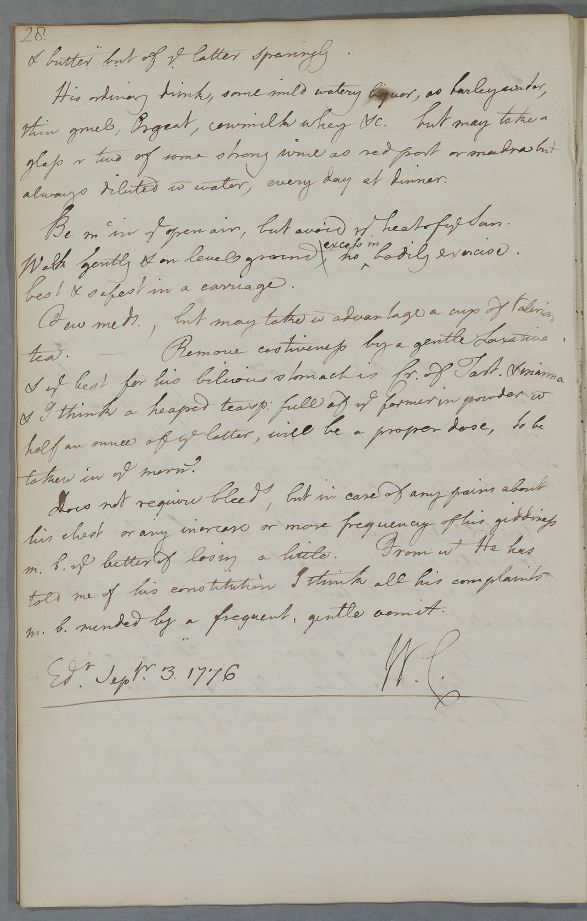 28.
& butter but of ye latter sparingly.
His ordinary drink, some mild watery liquor, as barleywater,
thin gruel, Orgeat, cowmilk whey &c. but may take a
glass or two of some strong wine as red port or madra but
always diluted w water, every day at dinner.
Be mch in ye open air, but avoid ye heat of ye Sun.
Walk gently & on level ground, no excess in bodily exercise.
best & safest in a carriage.
Few meds., but may take w advantage a cup of Valerian
tea. Remove costiveness by a gentle Laxative.
& ye best for his bilious stomach is Cr. of Tart. & manna
& I think a heaped teasp: full of ye former in powder w
half an ounce of ye latter, will be a proper dose, to be
taken in ye morng.
Does not require bleedg, but in case of any pains about
his chest or any increase or more frequency of his giddiness
m. b. ye better of losing a little. From wt He has
told me of his constitution I think all his complaints
m. b. mended by a frequent, gentle vomit.
Edr. Sepr. 3. 1776 W. C.